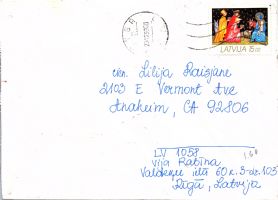 LATVIJA 15.00
cien. Lilija Raizāne
2103 E Vermont Ave
Anaheim, CA 92806
LV 1058
Vija Ratiņa
Valdeķu ielā 60 k. 3 - dz. 105
Rīgā, Latvijā